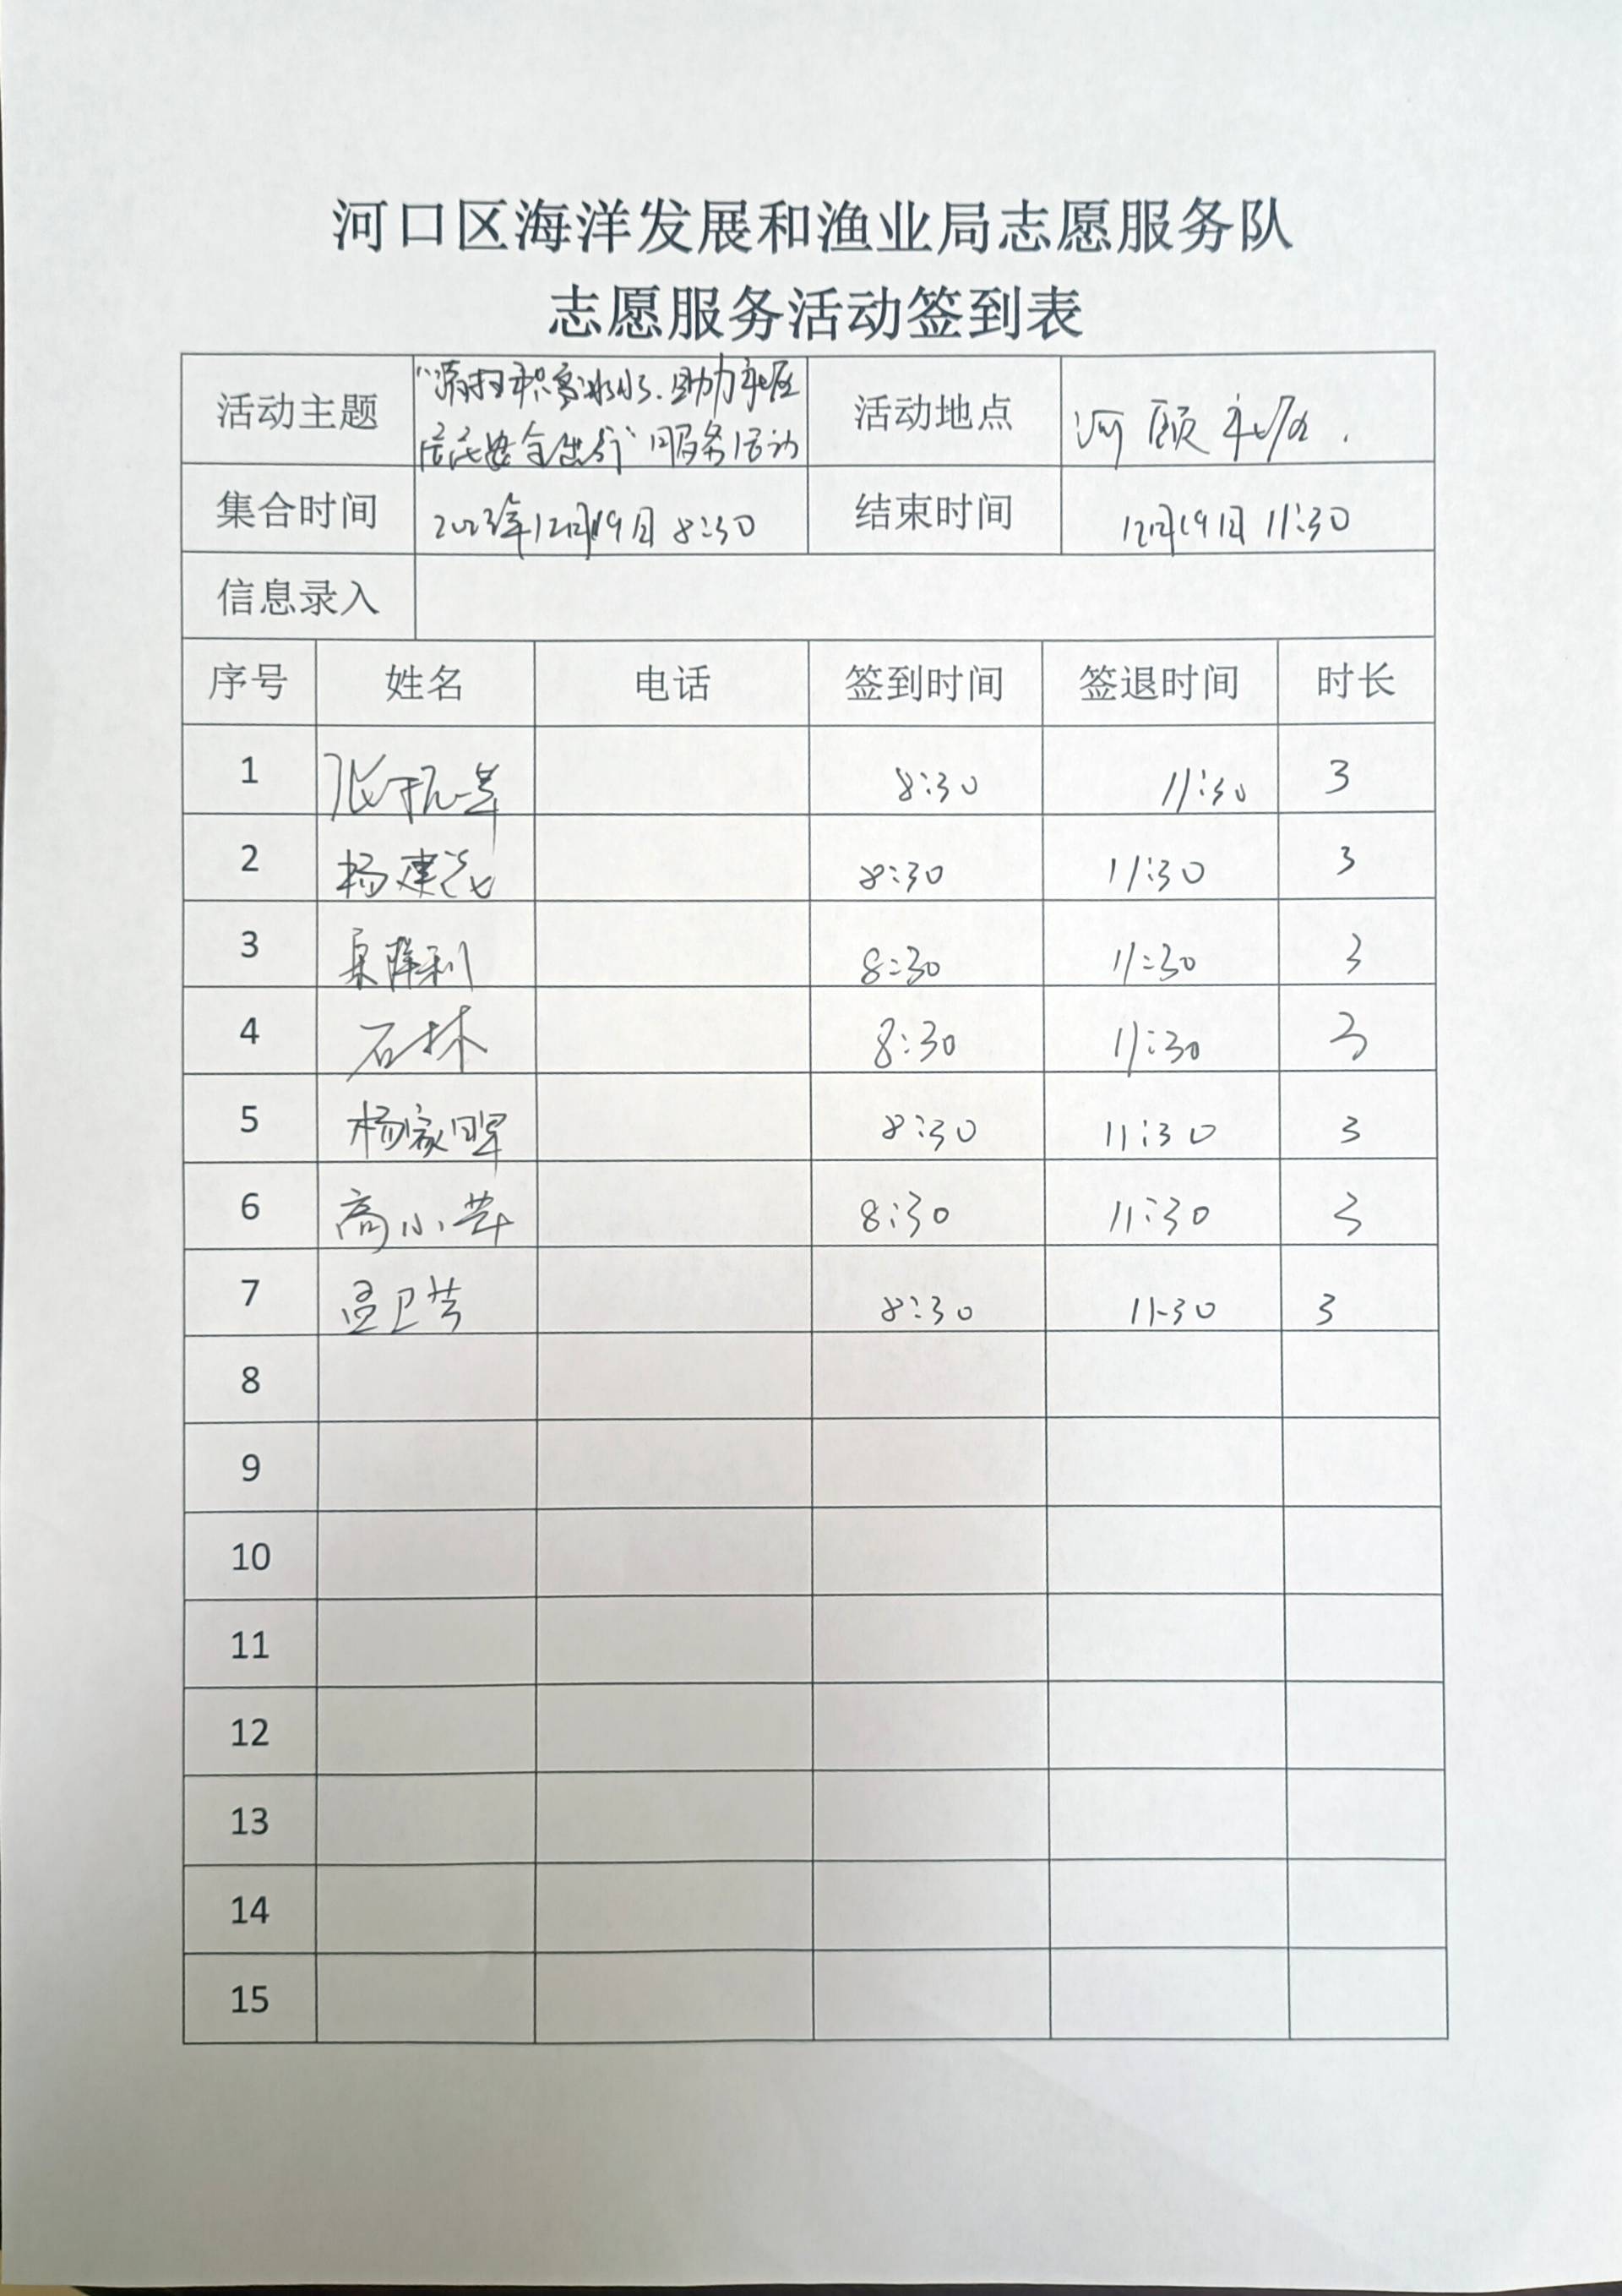 河口区海洋发展和渔业局志愿服务队
志愿服务活动签到表
活动主题 “清扫积雪冰水.助力社区 活动地点 河颐社区.
居民安全出行”服务活动
集合时间 2023年12月19日 8:30 结束时间 12月19日 11:30
信息录入
序号 姓名 电话 签到时间 签退时间 时长
1 张振 8:30 11:30 3
2 杨建 8:30 11:30 3
3 8:30 11:30 3
4 石林 8:30 11:30 3
5 杨家晖 8:30 11:30 3
6 高小苹 8:30 11:30 3
7 孟卫芳 8:30 11-30 3
8
9
10
11
12
13
14
15